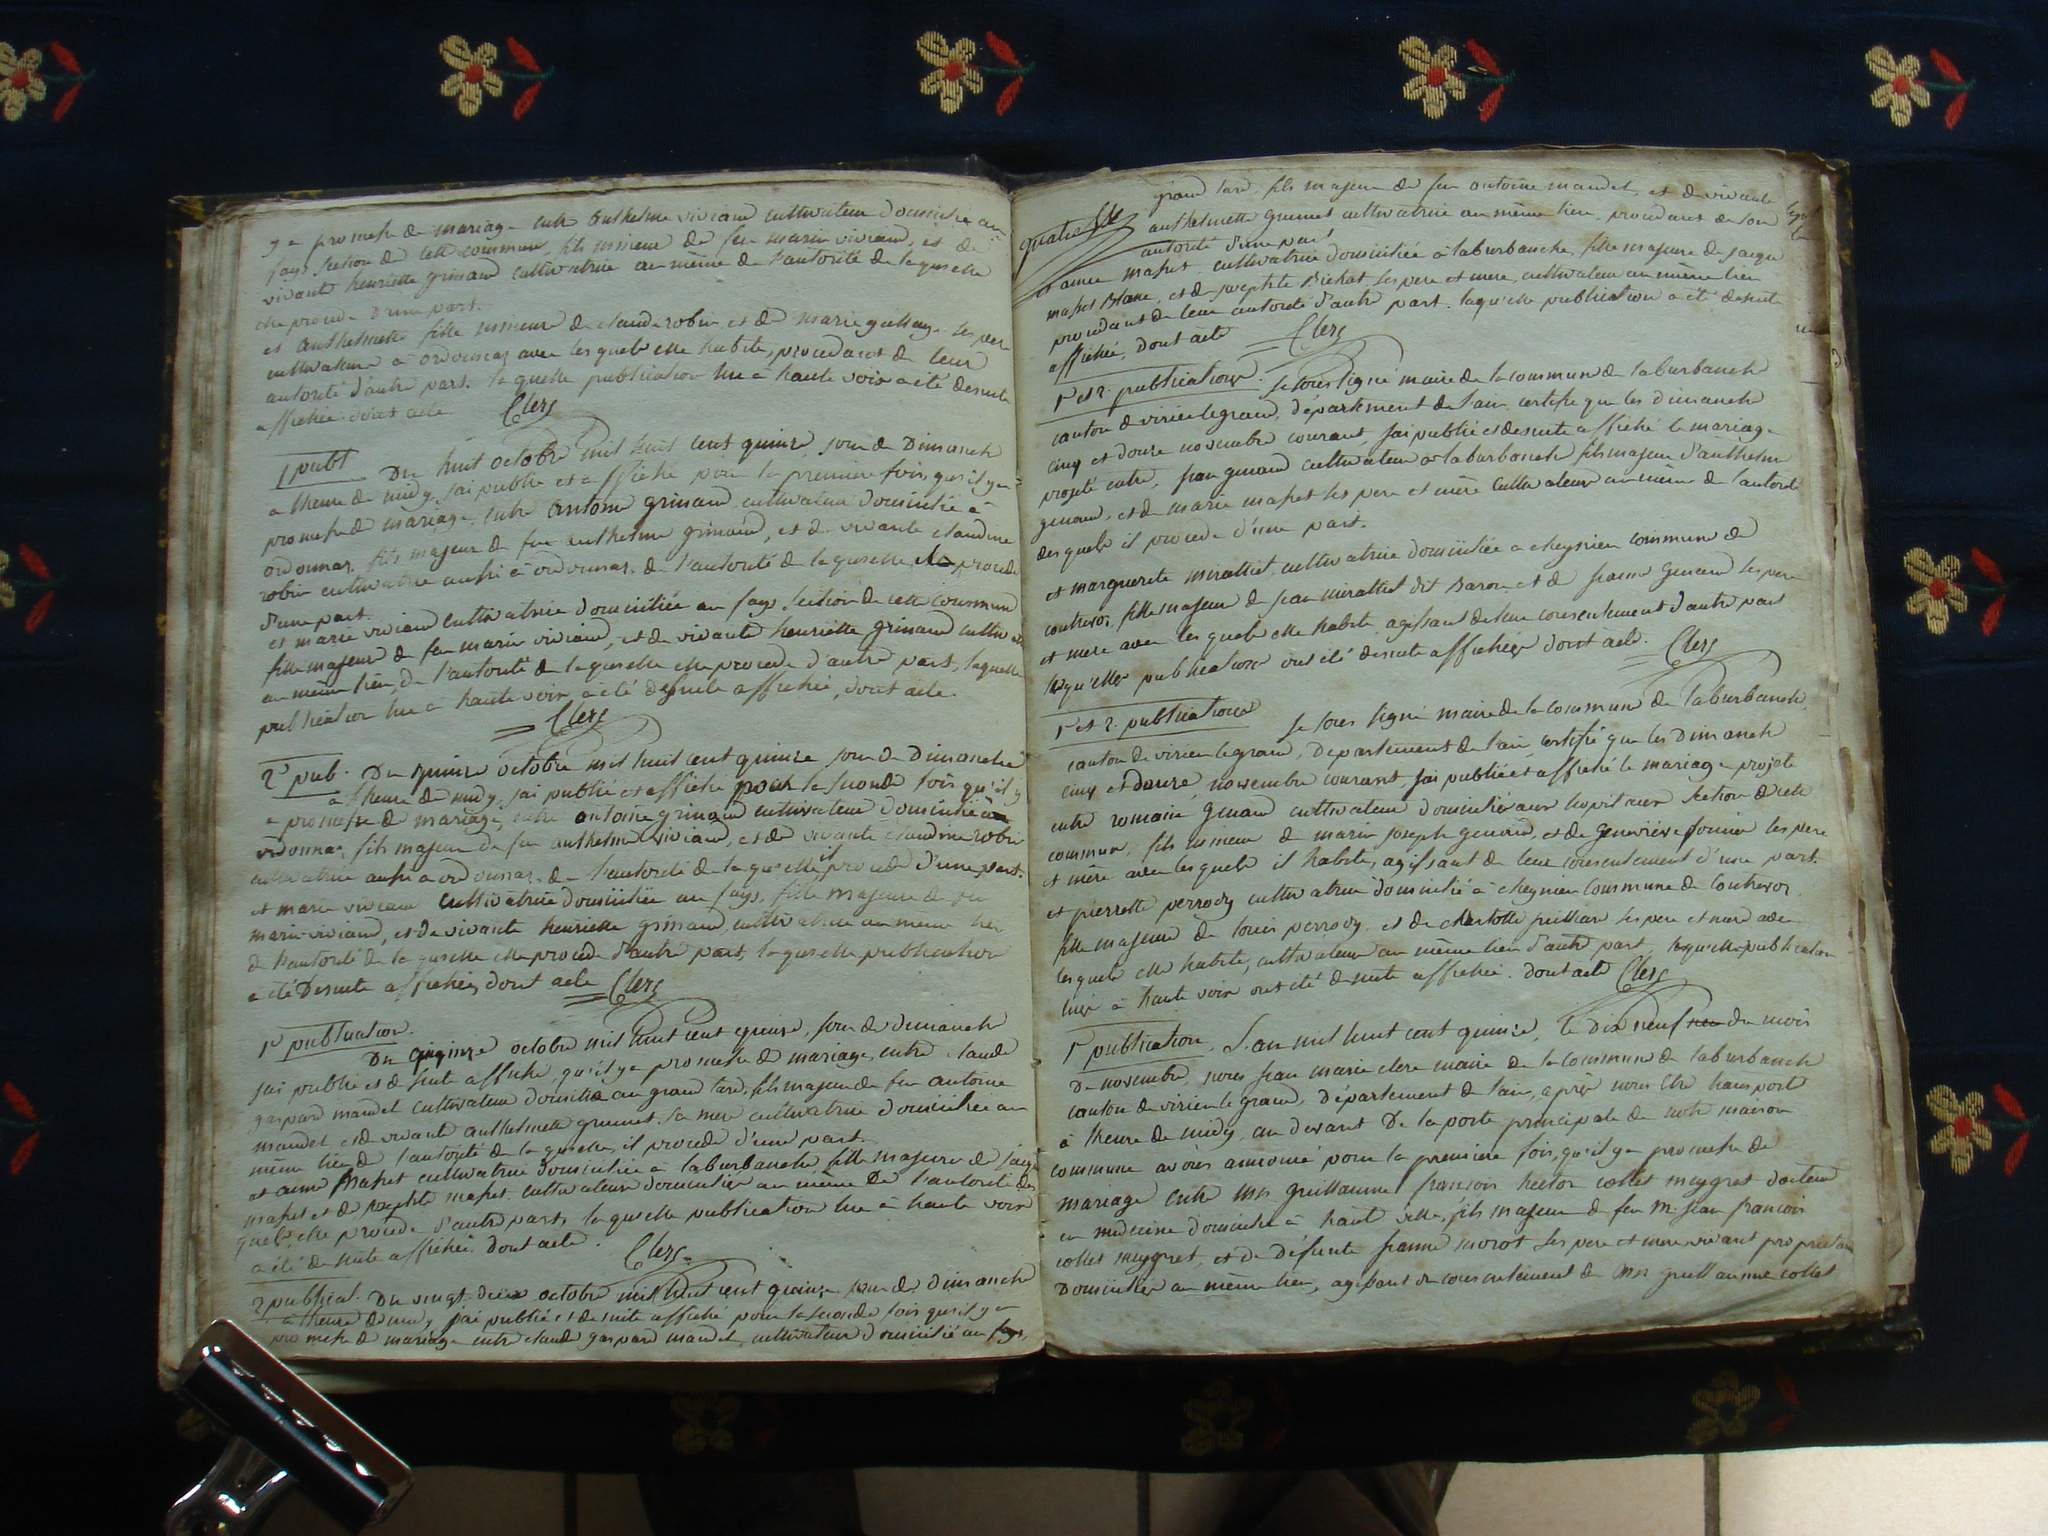 y a promesse de mariage entre Anthelme viviand cultivateur domicilié au
fays section de cette commune, fils mineur de feu marin viviand, et de
vivante henriette grinand cultivatrice au même de l'autorité de laquelle
elle procede d'une part.
et Anthelmette fille mineure de claude robin et de marie les pere
cultivateurs à ordonnaz avec lesquels elle habite, procedant de leur
autorité d'autre part. laquelle publication lue à haute voix a été desuite
affichée dont acte Clerc
1 publ Du huit octobre mil huit cent quinze, jour de Dimanche
a lheure de midy, jai publié et affiché pour la premiere fois, qu'il y a
promesse de mariage, entre Antoine grinand cultivateur domicilié à
ordonnaz, fils majeur de feu anthelme grinand, et de vivante claudine
robin cultivatrice aussi à ordonnaz, de l'autorité de laquelle procede
d'une part.
et marie viviand cultivatrice domiciliée au fays section de cette commune
fille majeure de feu marin viviand, et de vivante henriette grinand cultiv
au même lieu, de l'autorité de laquelle elle procede d'autre part, laquelle
publication lue à haute voix, a été desuite affichée, dont acte.
Clerc
2e pub. Du quinze octobre mil huit cent quinze jour de Dimanche
a lheure de midy, jai publié et affiché pour la seconde fois qu'il y
a promesse de mariage, entre antoine grinand cultivateur domicilié à
ordonnaz, fils majeur de feu anthelme viviand, et de vivante claudine robin
cultivatrice aussi a ordonnaz. de l'autorité de laquelle il procede d'une part.
et marie viviand cultivatrice domiciliée au fays, fille majeure de feu
marin viviand, et de vivante henriette grinand, cultivatrice au même lieu
de l'autorité de laquelle elle procede d'autre part, laquelle publication
a été Desuite affichée, dont acte Clerc
1e publication.
Du quinze octobre mil huit cent quinze, jour de dimanche
jai publié et de suite affiché, qu'il y a promesse de mariage, entre claude
gaspard mandet cultivateur domicilié au grand tard, fils majeur de feu antoine
mandet et de vivante anthelmette grumet sa mere cultivatrice domiciliée au
même lieu de l'autorité de laquelle, il procede d'une part.
et anne Masset cultivatrice domiciliée à laburbanche, fille majeure de jacque
masset et de masset cultivateurs domiciliés au même De l'autorité des
quels elle procede d'autre part, laquelle publication lue à haute voix
a été de suite affichée dont acte. Clerc
2 publicat. Du vingt deux octobre mil huit cent quinze jour de dimanche
a lheure de midy, j'ai publié et desuite affiché pour la seconde fois qu'il y a
promesse de mariage entre claude gaspard mandet, cultivateur domicilié au
grand tard, fils majeur de feu antoine mandet, et de vivante
anthelmette grumet cultivatrice au même lieu, procedant de son
autorité d'une part
et anne masset cultivatrice domiciliée à laburbanche, fille majeure de jacque
masset Blanc, et de josephte Bichat ses pere et mere, cultivateurs au même lieu
procedant de leur autorité d'autre part. laquelle publication a été desuite
affichée, dont acte Clerc
1e et 2. publications. Je soussigné maire de la commune de laburbanche
canton de virieu legrand, département de l'ain, certifie que les dimanche
cinq et douze novembre courant, jai publié et desuite affiché le mariage
projeté entre, jean genand cultivateur à laburbanche fils majeur d'anthelme
genand, et de marie masset ses pere et mère cultivateurs au même de l'autorité
desquels il procede d'une part.
et marguerite mirallet cultivatrice domiciliée a cheynieu commune de
contrevoz, fille majeure de jean mirallet dit Baron et de genand ses pere
et mere avec lesquels elle habite, agissant de leur consentement d'autre part
lesquelles publications ont été desuite affichées dont acte. Clerc
1e et 2. publications Je sous signé maire de la commune de laburbanche,
canton de virieu legrand, Département de l'ain, certifie que les Dimanche
cinq et douze, novembre courant, jai publié et affiché le mariage projeté
entre romain Genand cultivateur domicilié aux hopitaux section de cette
commune, fils mineur de marin joseph genand, et de genevieve ses pere
et mère avec lesquels il habite, agissant de leur consentement d'une part.
et pierrette perrody cultivatrice domiciliée à cheynieu commune de contrevoz
fille majeure de louis perrody, et de charlotte ses pere et mere avec
lesquels elle habite, cultivateurs au même lieu d'autre part, lesquelles publications
lues à haute voix ont été de suite affichée. dont acte Clerc
1e publication, L'an mil huit cent quinze, le dix neuf du mois
De novembre, nous jean marie clerc maire de la commune de laburbanche
canton de virieu le grand, département de l'ain, après nous etre transporté
à lheure de midy, au devant De la porte principale de notre maison
commune avons annoncé pour la premiere fois, qu'il y a promesse de
mariage entre Mr. guillaume françois hector collet meygret docteur
en medecine domicilié à haut ville, fils majeur de feu M. jean françois
collet meygret, et de défunte jeanne morot ses pere et mere vivant proprietaires
Domiciliés au même lieu, agissant du consentement de Mr guillaume collet